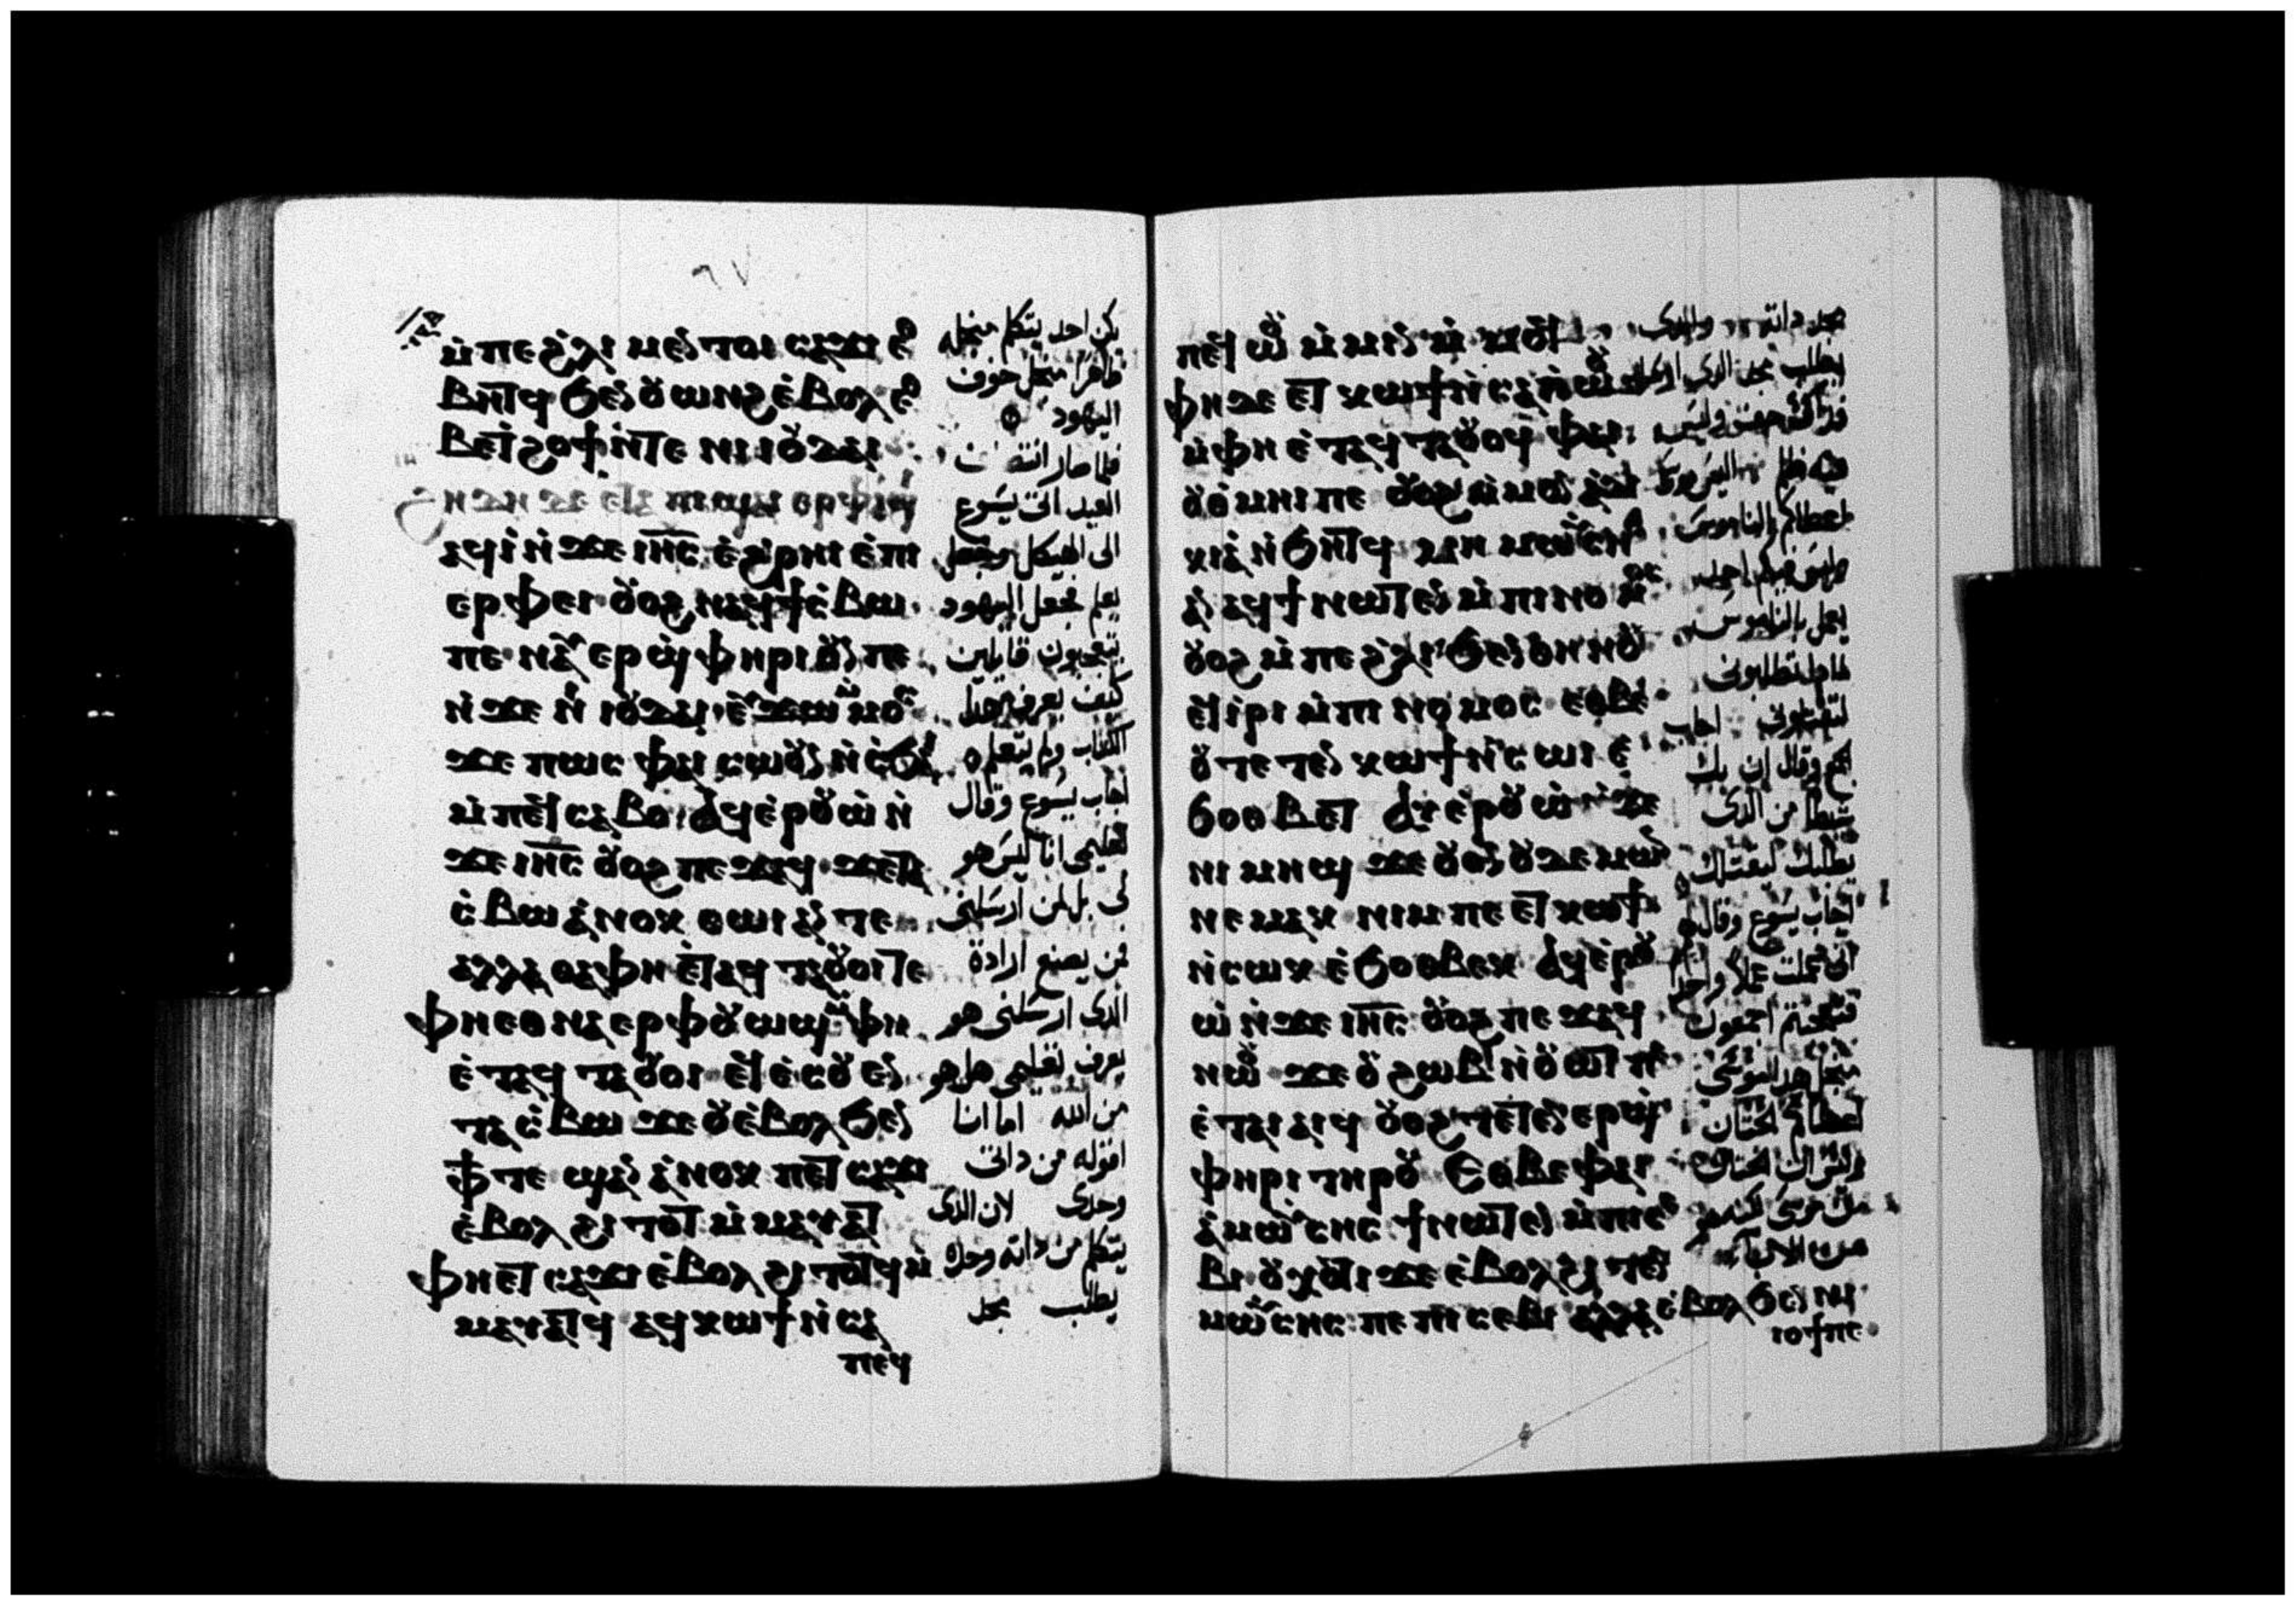 ٦٧
ⲙ̀ⲡⲉϩ̀ⲗⲓ ⲙⲉⲛⲧⲟⲓ ⲥⲁϫⲓ ⲉⲑ
ⲃⲏⲧϥ ϧⲉⲛ ⲟⲩⲱⲛϩ ⲉ̀ⲃⲟⲗ ⲉⲑ
ⲃⲉⲧϩⲟϯ ⲛ̀ⲧⲉ ⲛⲓⲓⲟⲩⲇⲁⲓ
ⲏⲇⲏ ⲇⲉ ⲉⲧⲁ ⲡⲓϣⲁⲓ ⲉⲣⲫⲁϣⲓ
ⲁϥⲓ̀ ⲛ̀ϫⲉ ⲓⲏⲥ ⲉ̀ϩ̀ⲣⲏⲓ ⲉ̀ⲡⲓ
ⲉⲣⲫⲉⲓ ⲟⲩⲟϩ ⲛⲁϥϯⲥ̀ⲃⲱ
ⲡⲉ ⲛⲁⲩⲉⲣϣ̀ⲫⲏⲣⲓ ⲟⲩⲛ ⲡⲉ
ⲛ̀ϫⲉ ⲛⲓⲓⲟⲩⲇⲁⲓ ⲉⲩϫⲱ ⲙⲙⲟⲥ
ϫⲉ ⲡⲱⲥ ⲫⲁⲓ ⲥⲱⲟⲩⲛ ⲛ̀ⲥ̀ϧⲁⲓ
ⲙ̀ⲡⲉⲧⲥⲁⲃⲟϥ ⲁϥⲉ̀ⲣⲟⲩⲱ̀ ⲛ̀
ϫⲉ ⲓⲏⲥ ⲟⲩⲟϩ ⲡⲉϫⲁϥ ϫⲉⲧⲁ
ⲥ̀ⲃⲱ ⲁ̀ⲛⲟⲕ ⲑⲱⲓ ⲁⲛ ⲧⲉ
ⲁⲗⲗⲁ ⲑⲁⲫⲏ ⲉ̀ⲧⲁϥⲧⲁⲟⲩⲟⲓ ⲧⲉ
ⲫⲏⲉⲑⲛⲁⲉⲣⲫⲟⲩⲱϣ ⲙⲫⲏ
ⲉ̀ⲧⲁϥⲧⲁⲟⲩⲟⲓ ⲉϥⲉ̀ⲥⲟⲩⲉⲛ
ⲧⲁⲥ̀ⲃⲱ ϫⲉ ⲟⲩⲉ̀ⲃⲟⲗ ϧⲉⲛ
ⲫϯⲧⲉ ϣⲁⲛ ⲁ̀ⲛⲟⲕ ⲡⲉⲧⲥⲁϫⲓ
ⲉ̀ⲃⲟⲗ ϩⲓⲧⲟⲧ ⲙ̀ⲙⲁⲩⲁⲧ
ⲫⲏⲉⲧⲥⲁϫⲓ ⲉ̀ⲃⲟⲗ ϩⲓⲧⲟⲧϥ ⲙ̀
ⲙⲁⲩⲁⲧϥ ⲁϥⲕⲱϯ ⲛ̀ⲥⲁ
ⲡⲉϥ
يكن احد يتكلم منجله
ظاهرا منجل خوف
اليهود
فلما صار انتصاف
العيد اتى يسوع
الى الهيكل وجعل
يعلم فجعل اليهود
يتعجبون قايلين
كيف يعرف هدا
الكتاب ولم يتعلمه
اجاب يسوع وقال
تعليمى انا ليس هو
لى بل لمن ارسلنى
من يصنع ارادة
الدى ارسلنى هو
يعرف تعليمى هل هو
من الله اما انا
اقوله من داتى
وحدى لان الدى
يتكلم من داته وحده
يطلب مجد
ⲡⲉⲧⲱⲟⲩ ⲙ̀ⲙⲓⲛ ⲙ̀ⲙⲟϥ
ⲫⲏ ϫⲉ ⲉⲧⲕⲱϯ ⲛ̀ⲥⲁⲡ̀ⲱⲟⲩ
ⲙ̀ⲫⲏ ⲉ̀ⲧⲁϥⲧⲁⲟⲩⲟϥ ⲫⲁⲓ
ⲟⲩⲑ̀ⲙⲏⲓ ⲡⲉ ⲟⲩⲟϩ ⲙ̀ⲙⲟⲛ ⲁ̀ϫⲓ
ⲕⲓⲁ̀ ⲛ̀ϧⲏⲧϥ ⲙⲏ ⲙⲱⲩⲥⲏⲥ
ⲁⲛ ⲁϥϯⲛⲱⲧⲉⲛ ⲙ̀ⲡⲓⲛⲟⲙⲟⲥ
ⲟⲩⲟϩ ⲙ̀ⲡⲉϩ̀ⲗⲓ ϧⲉⲛ ⲑⲏⲛⲟⲩ
ⲉⲧⲓ̀ⲣⲓ ⲙ̀ⲡⲓⲛⲟⲙⲟⲥ ⲉⲑⲃⲉ
ⲟⲩ ⲧⲉⲧⲉⲛ ⲕⲱϯ ⲛ̀ⲥⲱⲓ ⲉ̀
ϧⲟⲑⲃⲉⲧ ⲁϥⲉ̀ⲣⲟⲩⲱ̀ ⲛ̀ϫⲉ
ⲛⲓⲙⲏϣ ϫⲉ ⲟⲩⲟⲛ ⲟⲩⲇⲉⲙⲱⲛ
ⲛⲉⲙⲁⲕ ⲛⲓⲙ ⲡⲉⲧⲕⲱϯ
ⲛ̀ⲥⲱⲕ ⲉ̀ϧⲟⲑⲃⲉⲕ ⲁϥⲉ̀ⲣⲟⲩ
ⲱ̀ ⲛ̀ϫⲉ ⲓⲏⲥ ⲟⲩⲟϩ ⲡⲉϫⲁϥ
ⲛⲱⲟⲩ ϫⲉ ⲟⲩϩⲱⲃ ⲛ̀ⲟⲩⲱⲧ ⲡⲉ
ⲉ̀ⲧⲁⲓⲁⲓϥ ⲟⲩⲟϩ ⲧⲉⲧⲉⲛⲉⲣϣ̀
ⲫⲏⲣⲓ ⲧⲏⲣⲟⲩ ⲉⲑⲃⲉ ⲫⲁⲓ
ⲁ̀ⲙⲱⲩⲥⲏⲥ ϯⲛⲱⲧⲉⲛ ⲙ̀ⲡⲓⲥⲉ
ⲃⲓ ⲟⲩⲭⲟⲧⲓ ϫⲉ ⲉ̀ⲃⲟⲗ ϩⲓⲧⲉⲛ
ⲙⲱⲩⲥⲏⲥ ⲡⲉ ⲡⲓⲥⲉⲃⲓ ⲁⲗⲗⲁ ⲉ̀ⲃⲟⲗ ϧⲉⲛ ⲛⲓ
ⲓⲟϯ ⲡⲉ
مجد داته والدى
يطلب مجد الدى ارسله
فداك
فيه ظلم اليس موسى
اعطاكم الناموس
وليس فيكم احد
يعمل بالناموس
لمادا تطلبونى
لتقتلونى اجاب
الجمع وقال ان بك
شيطانا من الدى
يطلبك ليقتلك
اجاب يسوع وقال لهم
انى عملت عملا واحدا
فتعجبتم اجمعون
منجل هدا موسى
اعطاكم الختان
وليس ان الختان
من موسى لكنه هو
من الاباء